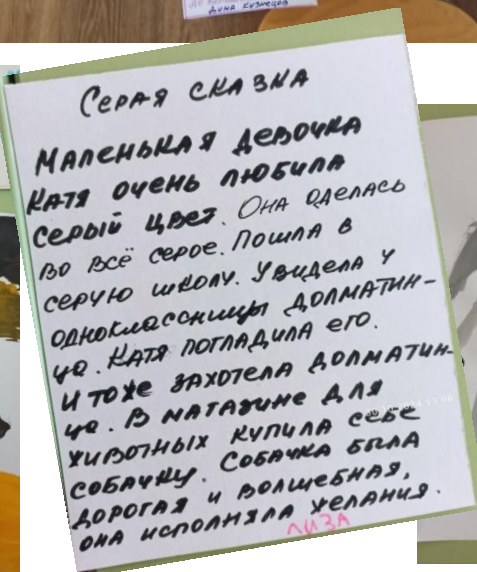 Дина Кузнецов
Серая сказка
Маленькая девочка
Катя очень любила
серый цвет. Она оделась
во всё серое. Пошла в
серую школу. Увидела у
одноклассницы долматин-
ца. Катя погладила его.
И тоже захотела долматин-
ца. В магазине для
животных купила себе
собачку. Собачка была
дорогая и волшебная,
она исполняла желания.
Лиза